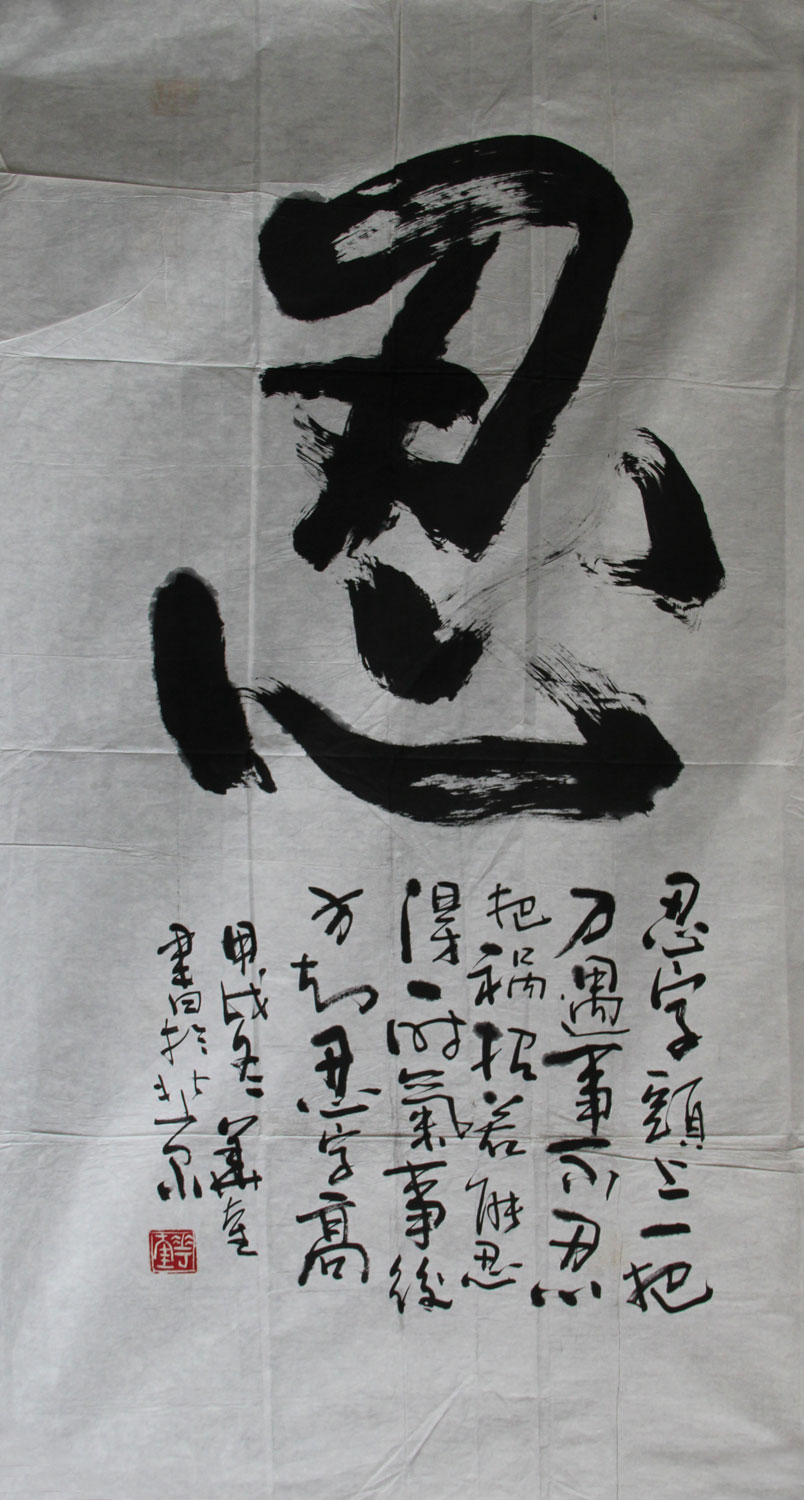 忍
忍字頭上一把
刀遇事不忍
把禍招若能忍
得一时氣事後
方知忍字高
甲戌冬華奎
書於北京